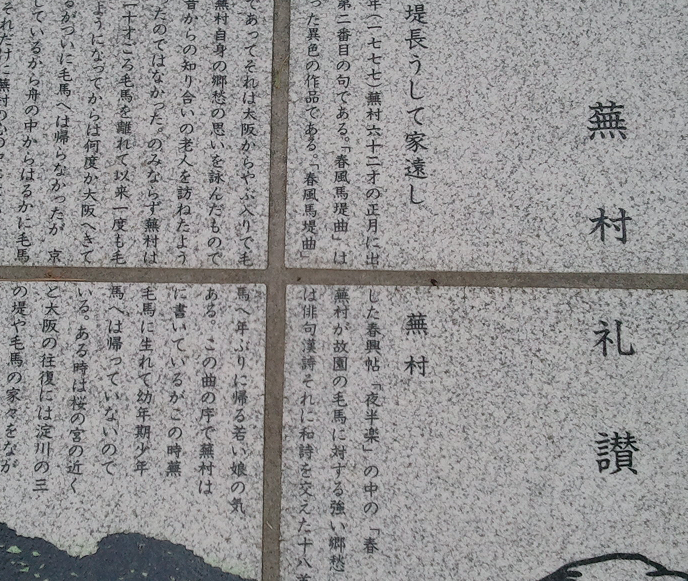 蕪村礼讃
堤長うして家遠し 蕪村
年(一七七七)蕪村六十二才の正月に出した春興帖「夜半楽」の中の「春
第二番目の句である。「春風馬堤曲」は蕪村が故園の毛馬に対する強い郷愁
った異色の作品である。「春風馬堤曲」は俳句漢詩それに和詩を交えた十八
であってそれは大阪からやぶ入りで毛馬へ年ぶりに帰る若い娘の気
蕪村自身の郷愁の思いを詠んだものである。この曲の序で蕪村は
昔からの知り合いの老人を訪ねたように書いているがこの時蕪
ったのではなかった。のみならず蕪村は毛馬に生れて幼年期少年
二十才ごろ毛馬を離れて以来一度も毛馬へは帰っていないので
ようになってからは何度か大阪へきている。ある時は桜の宮の近く
るがついに毛馬へは帰らなかったが 京と大阪の往復には淀川の三
しているから舟の中からはるかに毛馬の堤や毛馬の家々をなが
それだけに蕪村の